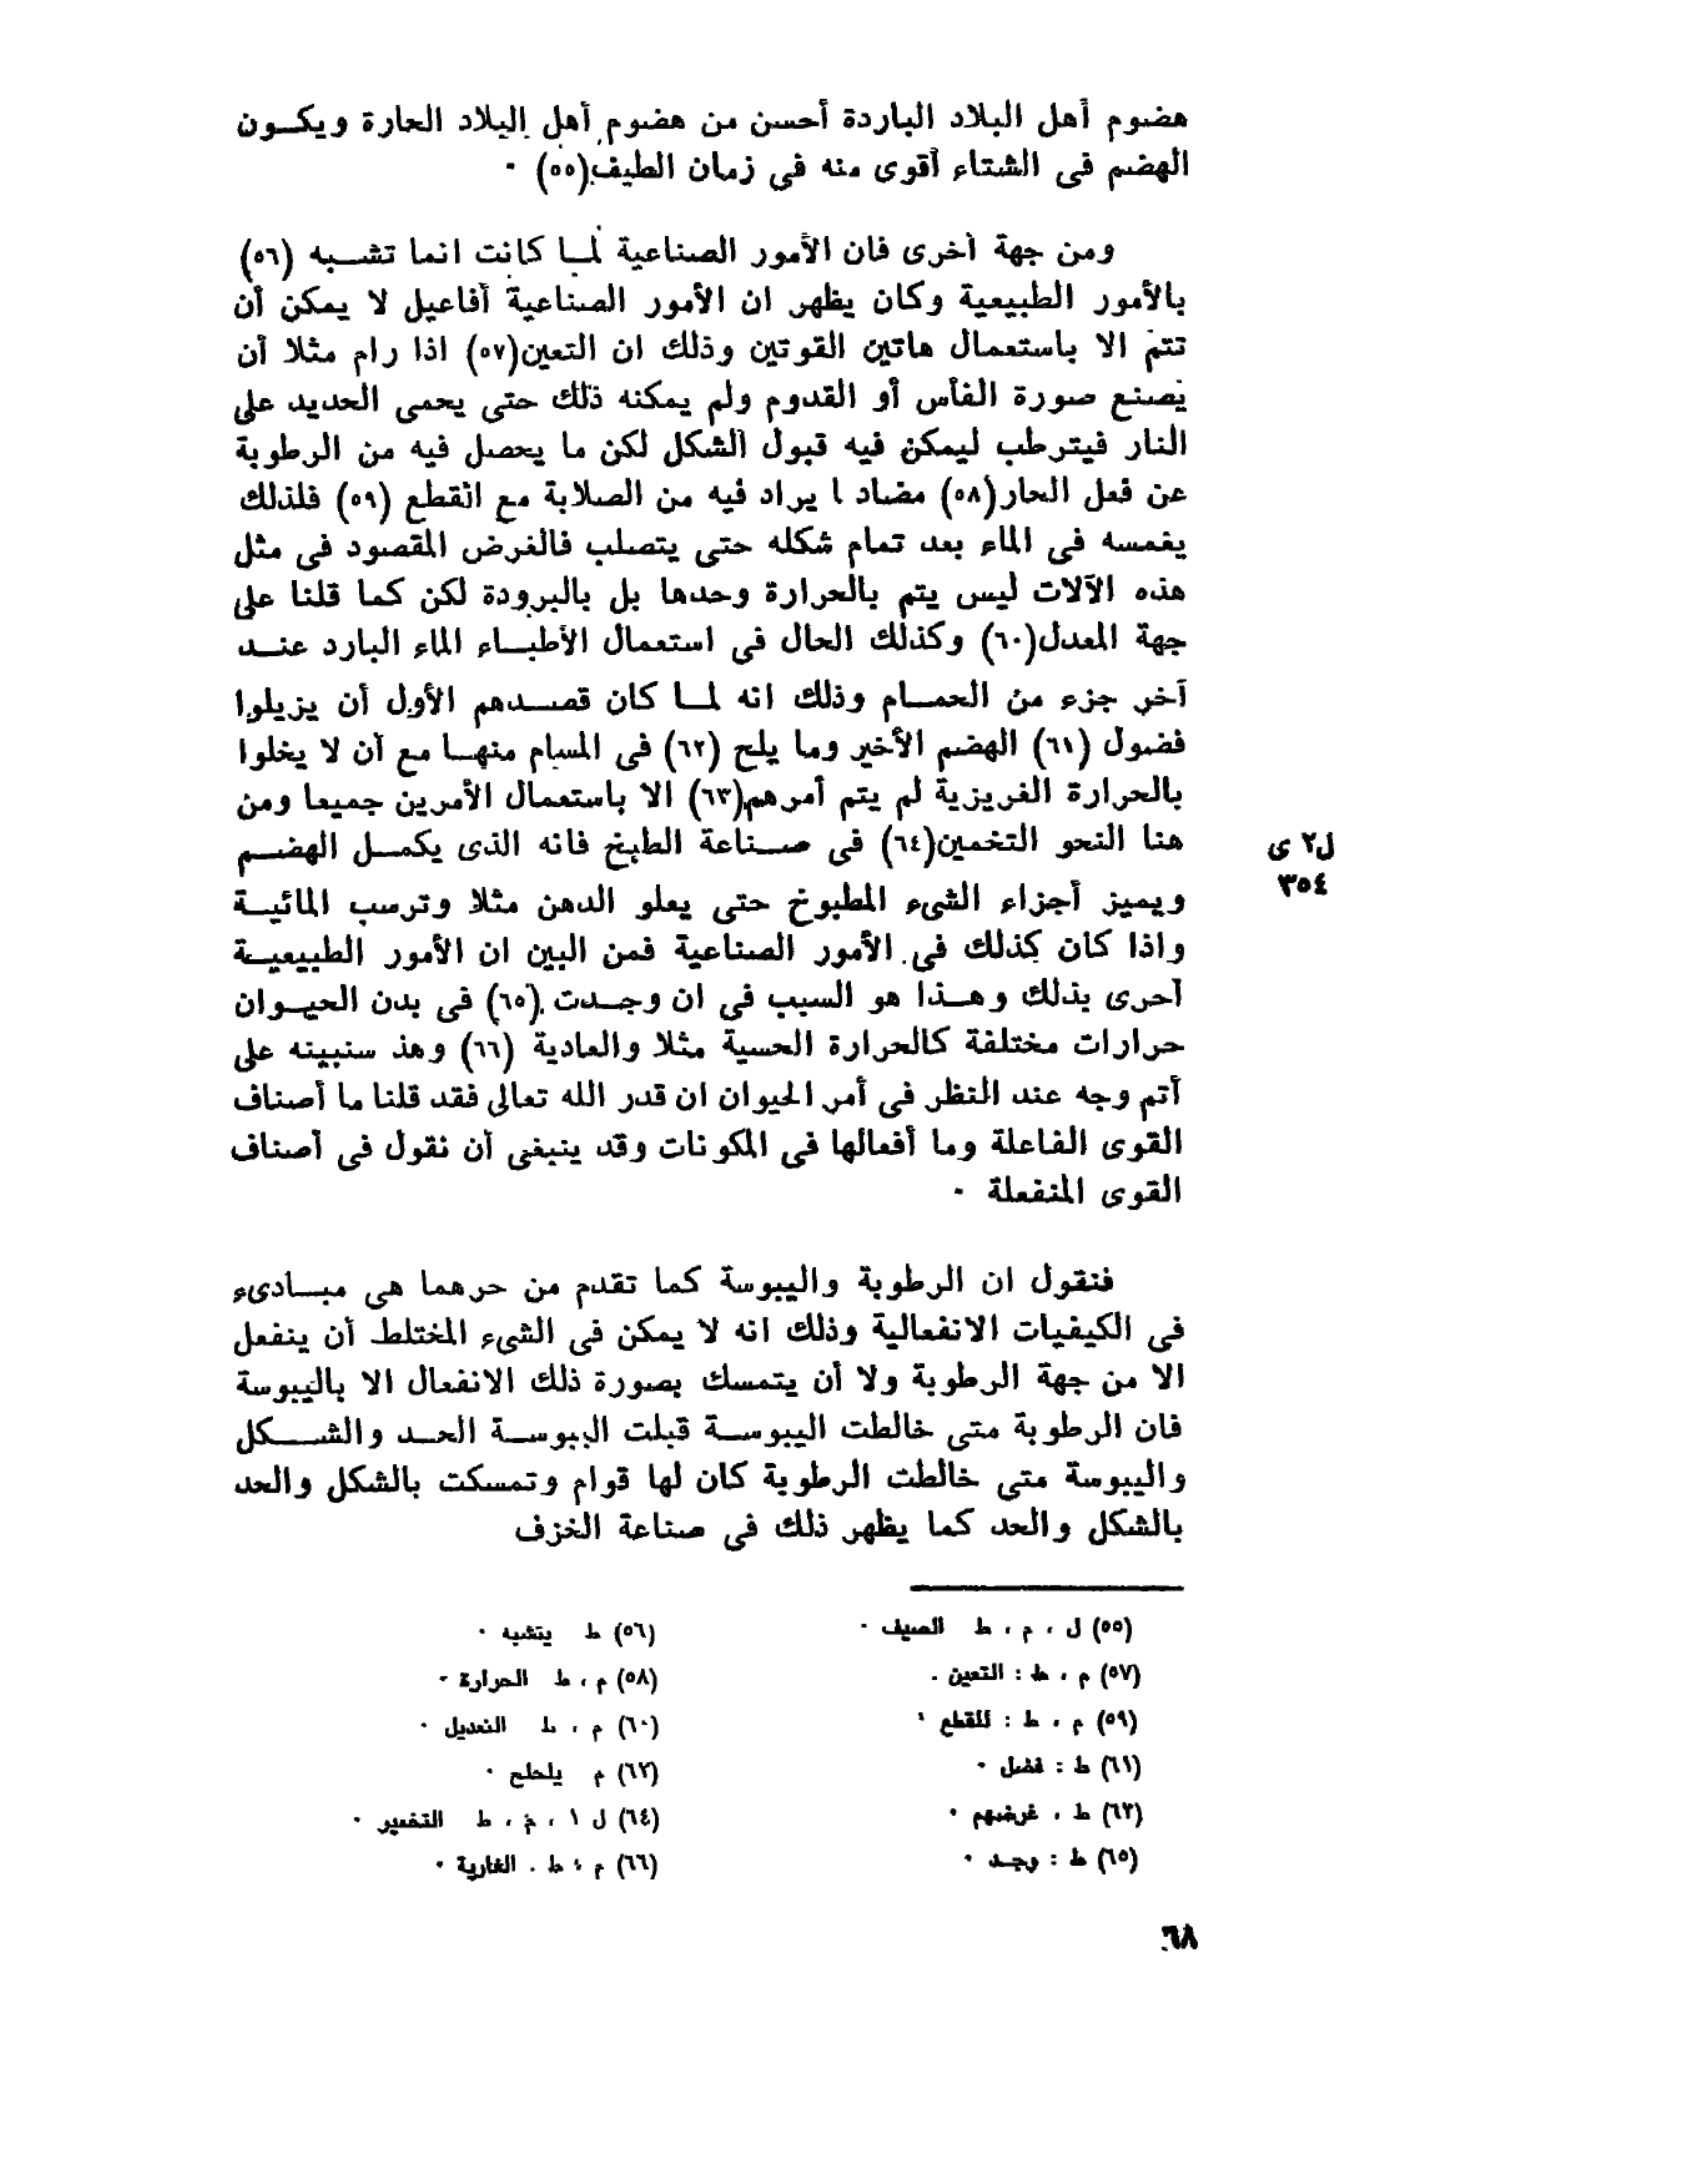 هضوم أهل البلاد الباردة أحسن من هضوم أهل البلاد الحارة ويكون
الهضم فى الشتاء أقوى منه فى زمان الطيف(٥٥) ٠
ومن جهة أخرى فان الأمور الصناعية لما كانت انما تشبه (٥٦)
بالأمور الطبيعية وكان يظهر ان الأمور الصناعية أفاعيل لا يمكن أن
تتم الا باستعمال هاتين القوتين وذلك ان التعين(٥٧) اذا رام مثلا أن
يصنع صورة الفأس أو القدوم ولم يمكنه ذلك حتى يحمى الحديد على
النار فيترطب ليمكن فيه قبول الشكل لكن ما يحصل فيه من الرطوبة
عن فعل الحار(٥٨) مضاد ا يراد فيه من الصلابة مع القطع (٥٩) فلذلك
يغمسه فى الماء بعد تمام شكله حتى يتصلب فالغرض المقصود فى مثل
هذه الآلات ليس يتم بالحرارة وحدها بل بالبرودة لكن كما قلنا على
جهة المعدل(٦٠) وكذلك الحال فى استعمال الأطباء الماء البارد عند
آخر جزء من الحمام وذلك انه لما كان قصدهم الأول أن يزيلوا
فضول (٦١) الهضم الأخير وما يلح (٦٢) فى المسام منها مع أن لا يخلوا
بالحرارة الغريزية لم يتم أمرهم(٦٣) الا باستعمال الأمرين جميعا ومن
هنا النحو التخمين(٦٤) فى صناعة الطبخ فانه الذى يكمل الهضم
ل٢ ى
٣٥٤
ويميز أجزاء الشىء المطبوخ حتى يعلو الدهن مثلا وترسب المائية
واذا كان كذلك فى الأمور الصناعية فمن البين ان الأمور الطبيعية
أحرى بذلك وهذا هو السبب فى ان وجدت (٦٥) فى بدن الحيوان
حرارات مختلفة كالحرارة الحسية مثلا والعادية (٦٦) وهذ سنبينه على
أتم وجه عند النظر فى أمر الحيوان ان قدر الله تعالى فقد قلنا ما أصناف
القوى الفاعلة وما أفعالها فى المكونات وقد ينبغى أن نقول فى أصناف
القوى المنفعلة ٠
فنقول ان الرطوبة واليبوسة كما تقدم من حرهما هى مبادىء
فى الكيفيات الانفعالية وذلك انه لا يمكن فى الشىء المختلط أن ينفعل
الا من جهة الرطوبة ولا أن يتمسك بصورة ذلك الانفعال الا باليبوسة
فان الرطوبة متى خالطت اليبوسة قبلت اليبوسة الحد والشكل
واليبوسة متى خالطت الرطوبة كان لها قوام وتمسكت بالشكل والحد
بالشكل والحد كما يظهر ذلك فى صناعة الخزف
(٥٥) ل ، م ، ط الصيف ٠
(٥٦) ط يتشبه ٠
(٥٧) م ، ط : التعين ٠
(٥٨) م ، ط الحرارة ٠
(٥٩) م ، ط : للقطع ٠
(٦٠) م ، ط التعديل ٠
(٦١) ط : فضل ٠
(٦٢) م يلحلح ٠
(٦٣) ط ، غرضهم ٠
(٦٤) ل ١ ، م ، ط
(٦٥) ط : وجد ٠
(٦٦) م ، ط . الغارية ٠
٦٨